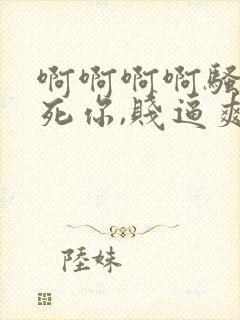 啊啊啊啊騷
死你,賤逼爽
陸妹